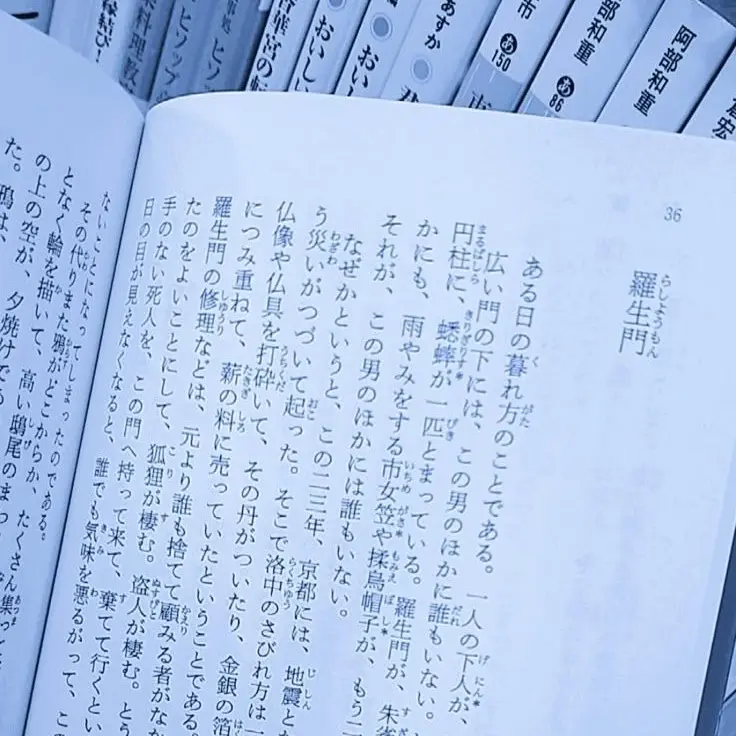 縁結び!
料理教
ヒソップ
華宮の
おいしい
おいし
あすか
市
あ
150
阿部和重
あ
86
阿部和重
36
羅生門
ある日の暮れ方のことである。一人の下人が、
広い門の下には、この男のほかに誰もいない。
円柱に、蟋蟀が一匹とまっている。羅生門が、朱雀
かにも、雨やみをする市女笠や揉烏帽子が、もう二
それが、この男のほかには誰もいない。
なぜかというと、この二三年、京都には、地震と
う災いがつづいて起った。そこで洛中のさびれ方は一
仏像や仏具を打砕いて、その丹がついたり、金銀の箔
につみ重ねて、薪の料に売っていたということである。
羅生門の修理などは、元より誰も捨てて顧みる者がなか
たのをよいことにして、狐狸が棲む。盗人が棲む。とう
手のない死人を、この門へ持って来て、棄てて行くとい
日の目が見えなくなると、誰でも気味を悪るがって、この
ないことになってしまったのである。
その代りまた鴉がどこからか、たくさん集って
となく輪を描いて、高い鴟尾のまわ
の上の空が、夕焼けで
た。鴉は、